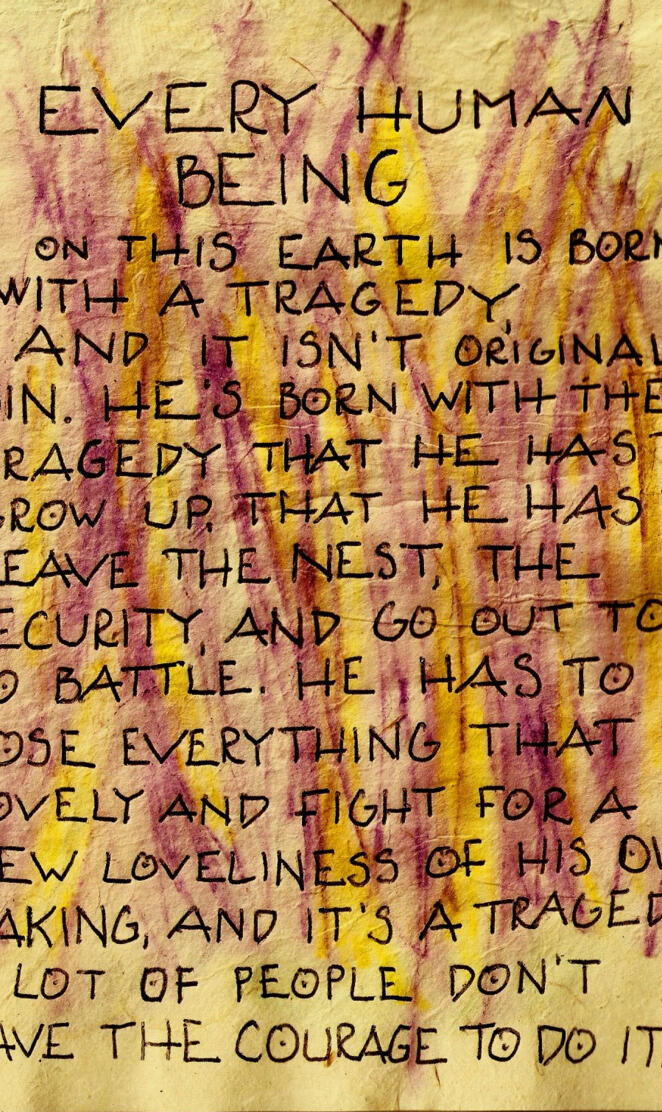 EVERY HUMAN
BEING
ON THIS EARTH IS BORN
WITH A TRAGEDY,
AND IT ISN'T ORIGINAL
IN. HE'S BORN WITH THE
RAGEDY THAT HE HAS T
GROW UP. THAT HE HAS
EAVE THE NEST, THE
ECURITY, AND GO OUT TO
O BATTLE. HE HAS TO
OSE EVERYTHING THAT
OVELY AND FIGHT FOR A
EW LOVELINESS OF HIS OW
AKING, AND IT'S A TRAGED
LOT OF PEOPLE DON'T
AVE THE COURAGE TO DO IT.